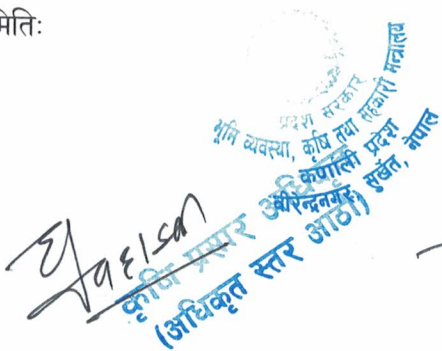 मितिः
प्रदेश सरकार
भूमि व्यवस्था, कृषि तथा सहकारी मन्त्रालय
कर्णाली प्रदेश
वीरेन्द्रनगर, सुर्खेत, नेपाल
कृषि प्रसार अधिकृत
(अधिकृत स्तर आठौं)